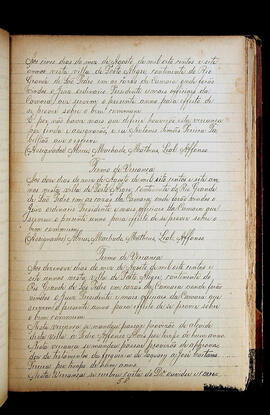 Aos cinco dias do mez de Agosto de mil sete centos e sete
annos nesta villa de Porto Alegre, continente do Rio
Grande de São Pedro em as casas da Camara onde forão
vindos o Juiz ordinario Presidente e mais officiaes da
Camara que servem o presente anno para effeito de
se prover o bem commum.
E por não haver mais que deferir houverão esta vereança
por finda e assignarão, e eu Antonio
bellião que o escrevi
(Assignados) Muniz, Machado, Matheus, Leal, Affonso
Termo de Vereança
Aos doze dias do mez de Agosto de mil sete centos e sete
annos nesta villa de Porto Alegre, continente do Rio Grande
de São Pedro em casas da Camara, onde forão vindos o
Juiz ordinario Presidente e mais officiaes da Camara que
servem o presente anno para effeito de se prover sobre o
bem commum.
(Assignados) Muniz, Machado, Matheus, Leal, Affonso
Termo de Vereança
Aos dezenove dias do mez de Agosto de mil sete centos e
sete annos nesta villa de Porto Alegre, continente do
Rio Grande de São Pedro em casas da Camara onde forão
vindos o Juiz Presidente e mais officiaes da Camara que
servem o presente anno para effeito de se prover sobre
o bem commum.
Nesta vereança se mandou passar provisão de alcaide
desta villa a Pedro Affonso por tempo de hum anno
Nesta vereança se mandou passar provisão de
de da freguezia de a José Caetano
por tempo de hum anno.
Nesta Vereança se recebeu carta do Dr. ouvidor